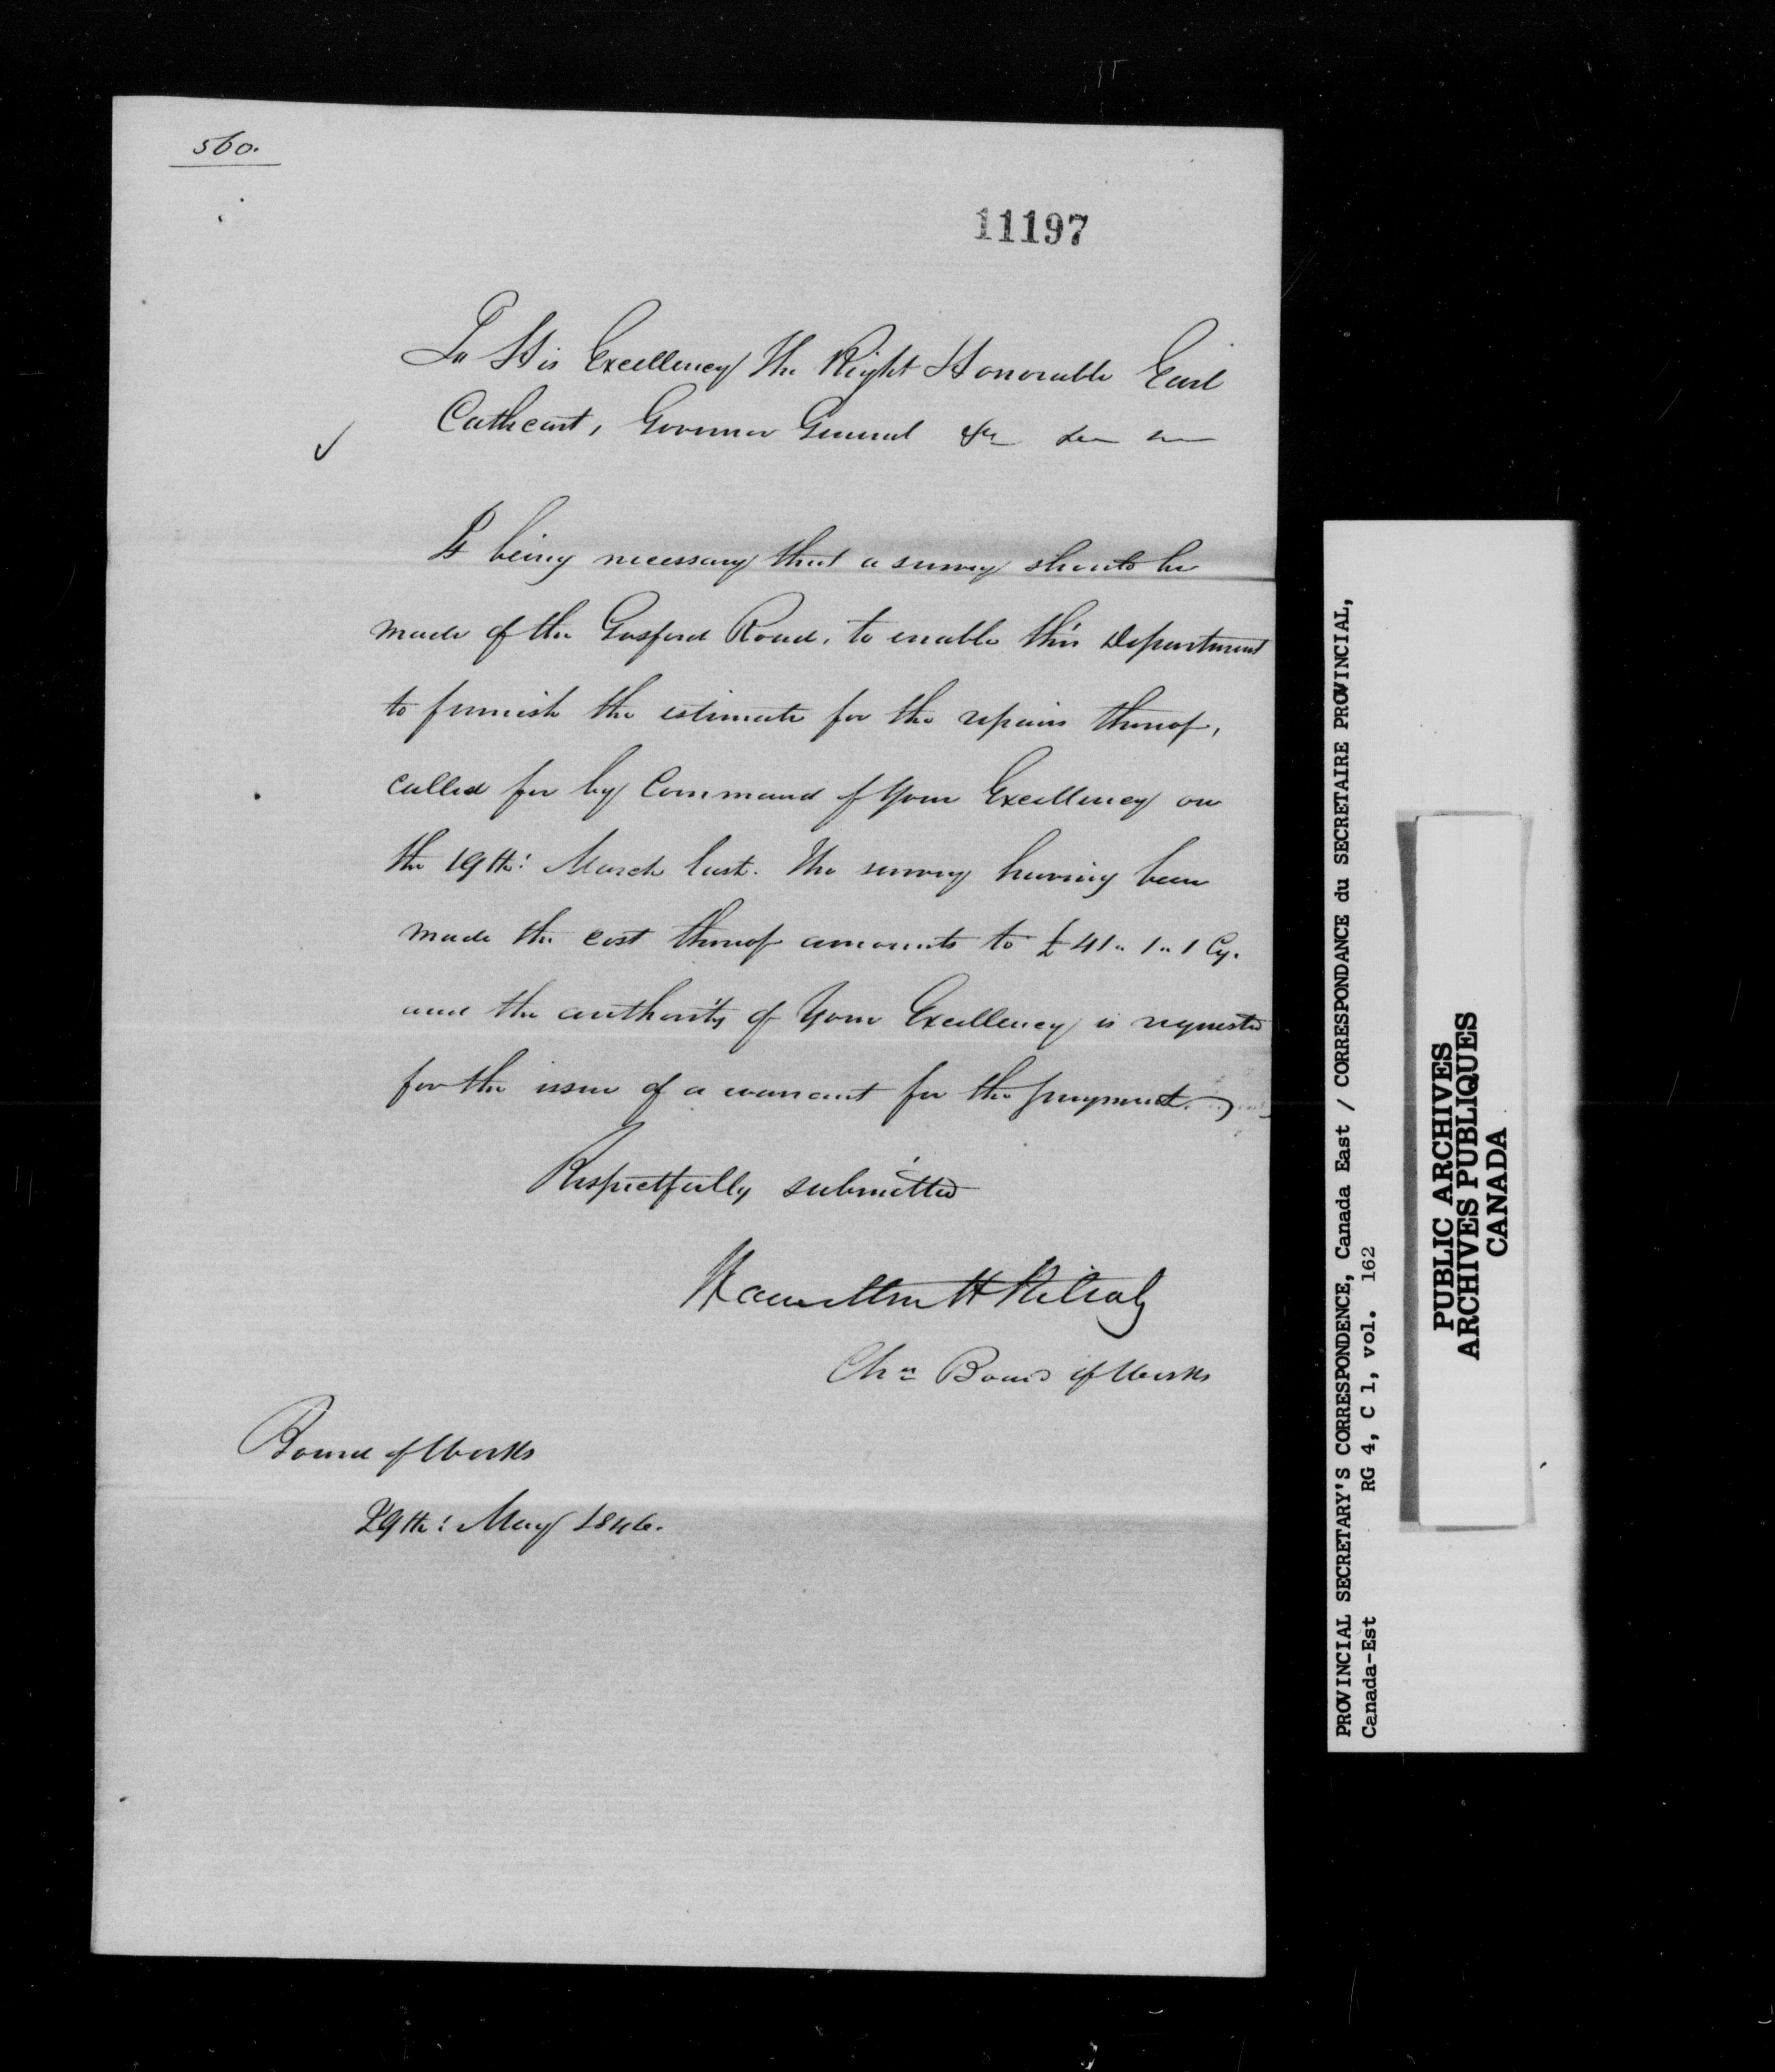 560.
11197
To His Excellency The Right Honorable Earl
Cathcart, Governor General &c &c &c
It being necessary that a survey should be
made of the Gosford Road, to enable this Department
to furnish the estimate for the repairs thereof,
called for by Command of Your Excellency on
the 19th: March last. The survey having been
made the cost thereof amounts to £41" 1" 1 Cy.
and the authority of Your Excellency is requested
for the issue of a warrant for the payment.
Respectfully submitted
Hamilton H Killaly
Chn Board of Works
Board of Works
29th: May 1846.
PROVINCIAL SECRETARY'S CORRESPONDENCE, Canada East / CORRESPONDANCE du SECRETAIRE PROVINCIAL,
Canada-Est RG 4, C 1, vol. 162
PUBLIC ARCHIVES
ARCHIVES PUBLIQUES
CANADA